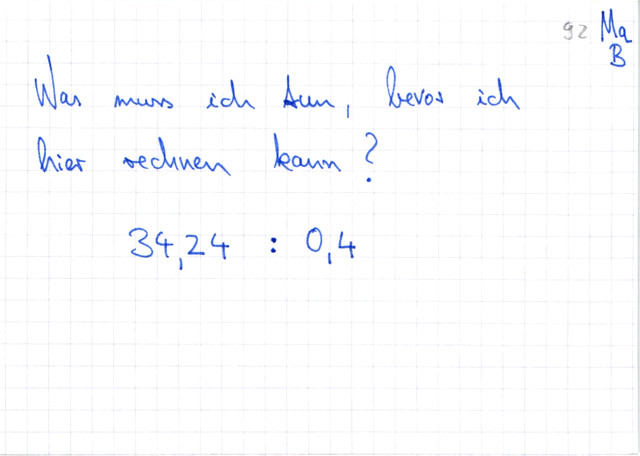 92 Ma
B
Was muss ich tun, bevor ich
hier rechnen kann?
34,24 : 0,4